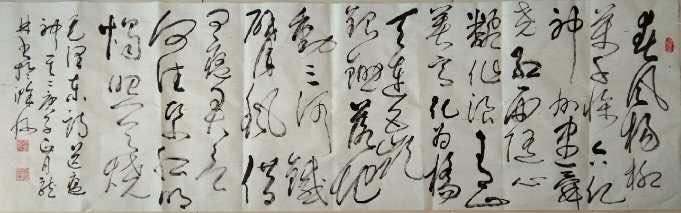 春风杨柳
万千條六亿
神州尽舜
尧红雨随心
翻作浪青山
着意化为橋
天连五岭
银锄落地
動三河鐵
臂摇借
问瘟君欲
何往纸船明
烛照天烧
毛泽东诗送瘟
神其二庚子正月龙